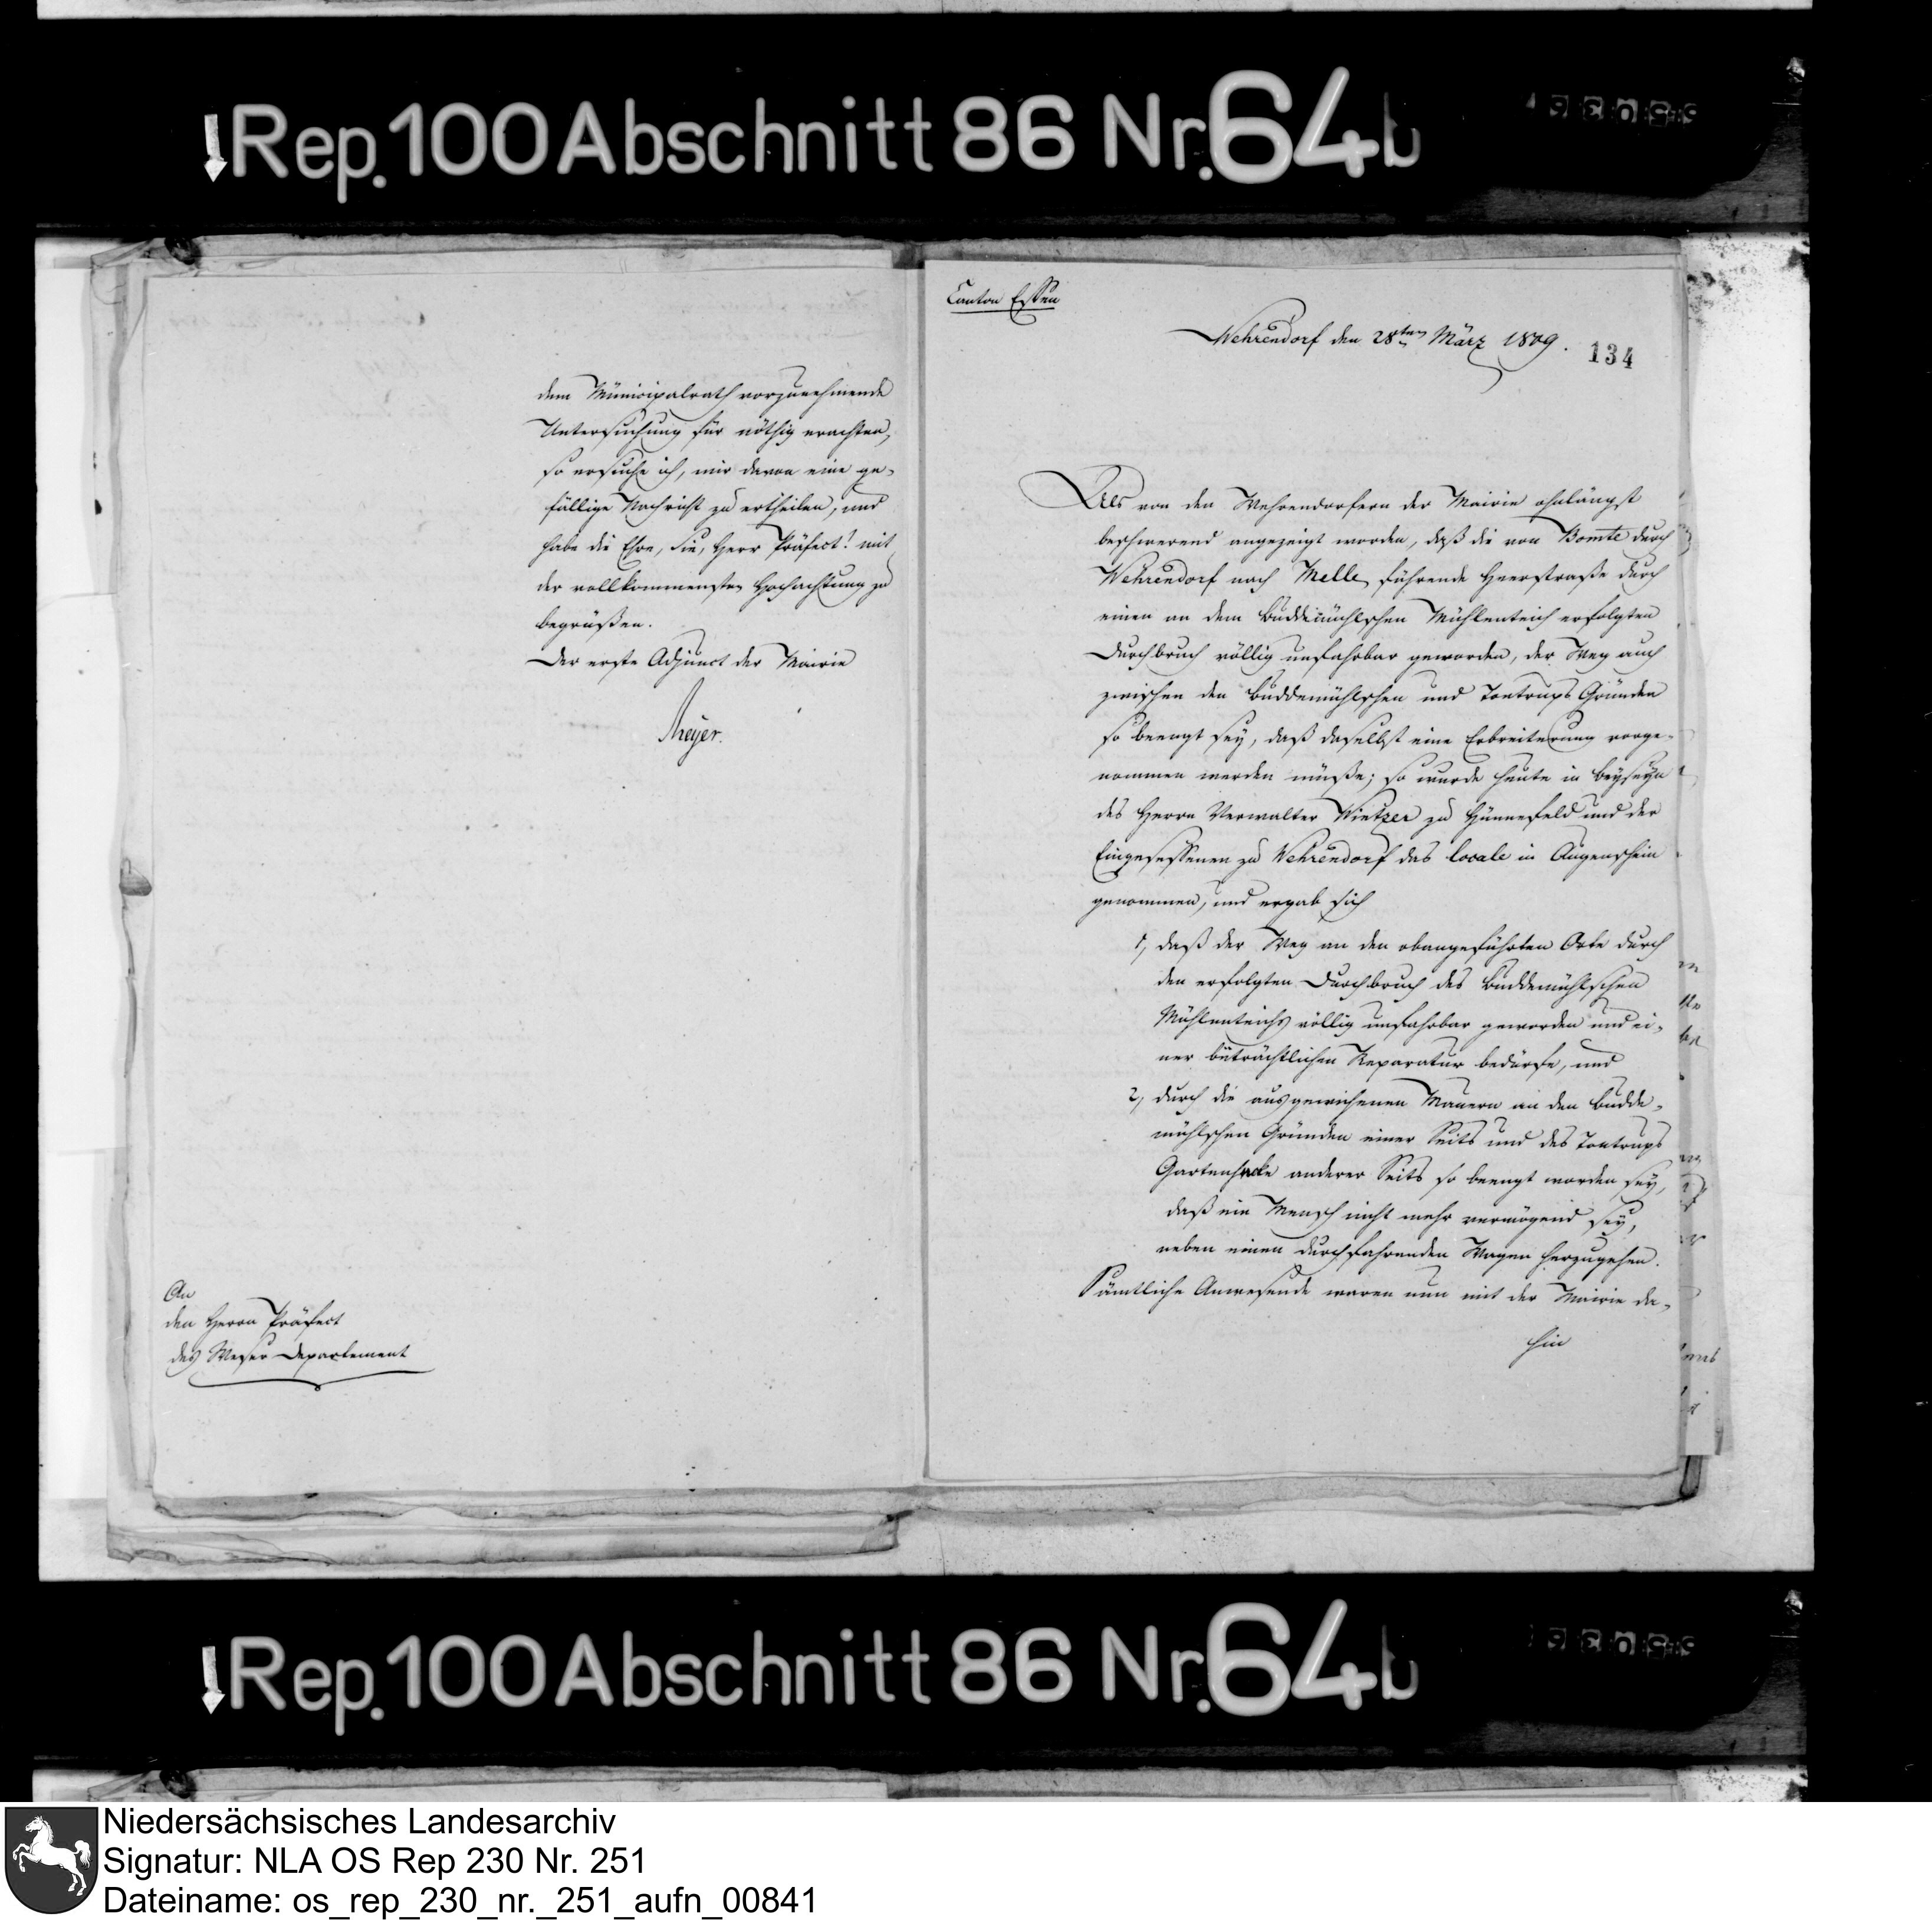 Rep. 100 Abschnitt 86 Nr. 64b
dem Municipalrath vorzunehmende
Untersuchung für nöthig erachten,
so ersuche ich, mir davon eine ge-
fällige Nachricht zu ertheilen, und
habe die Ehre, Sie, Herr Präfect! mit
der vollkommensten Hochachtung zu
begrüßen.
Der erste Adjunct der Mairie
Meyer.
An
den Herrn Präfect
des Weser-Departement
Canton Essen
Wehrendorf den 28ten März 1809.
134
Als von den Wehrendorfern der Mairie ohnlängst
beschwerend angezeigt worden, daß die von Bomte durch
Wehrendorf nach Melle führende Heerstraße durch
einen an dem Buddemühlschen Mühlenteich erfolgten
Durchbruch völlig unfahrbar geworden, der Weg auch
zwischen den Buddemühlschen und Tontrups Gründen
so beengt sey, daß daselbst eine Erbreiterung vorge-
nommen werden müße; so wurde heute in Beyseyn
des Herrn Verwalter Wietzer zu Hünnefeld und der
Eingesessenen zu Wehrendorf das locale in Augenschein
genommen, und ergab sich
1, daß der Weg an den obangeführten Orte durch
den erfolgten Durchbruch des Buddemühlschen
Mühlenteichs völlig unfahrbar geworden und ei-
ner beträchtlichen Reparatur bedürfe, und
2, durch die ausgewichenen Mauern an den Budde-
mühlschen Gründen einer Seits und des Tontrups
anderer Seits so beengt worden sey,
daß ein Mensch nicht mehr vermögend sey,
neben einen durchfahrenden Wagen herzugehen.
Sämtliche Anwesende waren nun mit der Mairie da-
hin
Rep. 100 Abschnitt 86 Nr. 64b
Niedersächsisches Landesarchiv
Signatur: NLA OS Rep 230 Nr. 251
Dateiname: os_rep_230_nr._251_aufn_00841